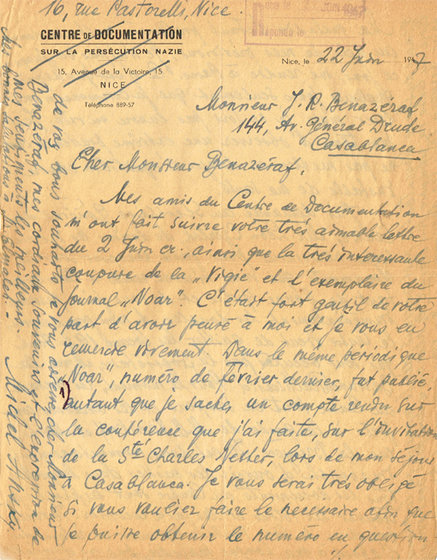 16, rue Pastorelli, Nice.
CENTRE DE DOCUMENTATION
SUR LA PERSÉCUTION NAZIE
15, Avenue de la Victoire, 15
NICE
Téléphone 889-57
Nice, le 22 Juin 1947
Monsieur J. R. Benazéraf
144, Av. Général Drude
Casablanca
Cher Monsieur Benazéraf,
Mes amis du Centre de Documentation
m'ont fait suivre votre très aimable lettre
du 2 Juin cr., ainsi que la très interessante
coupure de la "Vigie" et l'exemplaire du
journal "Noar". C'était fort gentil de votre
part d'avoir pensé à moi et je vous en
remercie vivement. Dans le même périodique
"Noar", numéro de février dernier, fut publié,
autant que je sache, un compte rendu sur
la conférence que j'ai faite, sur l'invitation
de la Sté Charles Netter, lors de mon séjour
à Casablanca. Je vous serai très obligé
si vous vouliez faire le necessaire afin que
je puisse obtenir le numéro en question
de vous Monsieur
Benazéraf, mes cordiaux souvenirs et l'expression de
mes sentiments les meilleurs.
Michel